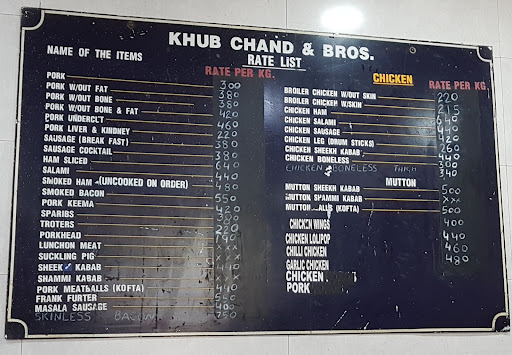 KHUB CHAND & BROS.
RATE LIST
NAME OF THE ITEMS
RATE PER KG.
PORK 300
PORK W/OUT FAT 380
PORK W/OUT BONE 380
PORK W/OUT BONE & FAT 420
PORK UNDERCL'T 460
PORK LIVER & KINDNEY 220
SAUSAGE (BREAK FAST) 380
SAUSAGE COCKTAIL 380
HAM SLICED 640
SALAMI 440
SMOKED HAM -(UNCOOKED ON ORDER) 480
SMOKED BACON 550
PORK KEEMA 420
SPARIBS 380
TROTERS 220
PORKHEAD
LUNCHON MEAT
SUCKLING PIG
SHEEK KABAB
SHAMMI KABAB
PORK MEATBALLS (KOFTA) 440
FRANK FURTER 550
MASALA SAUSAGE
SKINLESS BACON 750
CHICKEN
RATE PER KG.
BROILER CHICKEN W/OUT SKIN 220
BROILER CHICKEN W/SKIN 215
CHICKEN HAM 640
CHICKEN SALAMI 440
CHICKEN SAUSAGE 420
CHICKEN LEG (DRUM STICKS) 260
CHICKEN SHEEKH KABAB 440
CHICKEN BONELESS 300
CHICKEN BONELESS THIGH 340
MUTTON
MUTTON SHEEKH KABAB 500
MUTTON SHAMMI KABAB xxx
MUTTON ALLS (KOFTA) 500
CHICKEN WINGS 400
CHICKEN LOLIPOP 440
CHILLI CHICKEN 460
GARLIC CHICKEN 480
CHICKEN
PORK